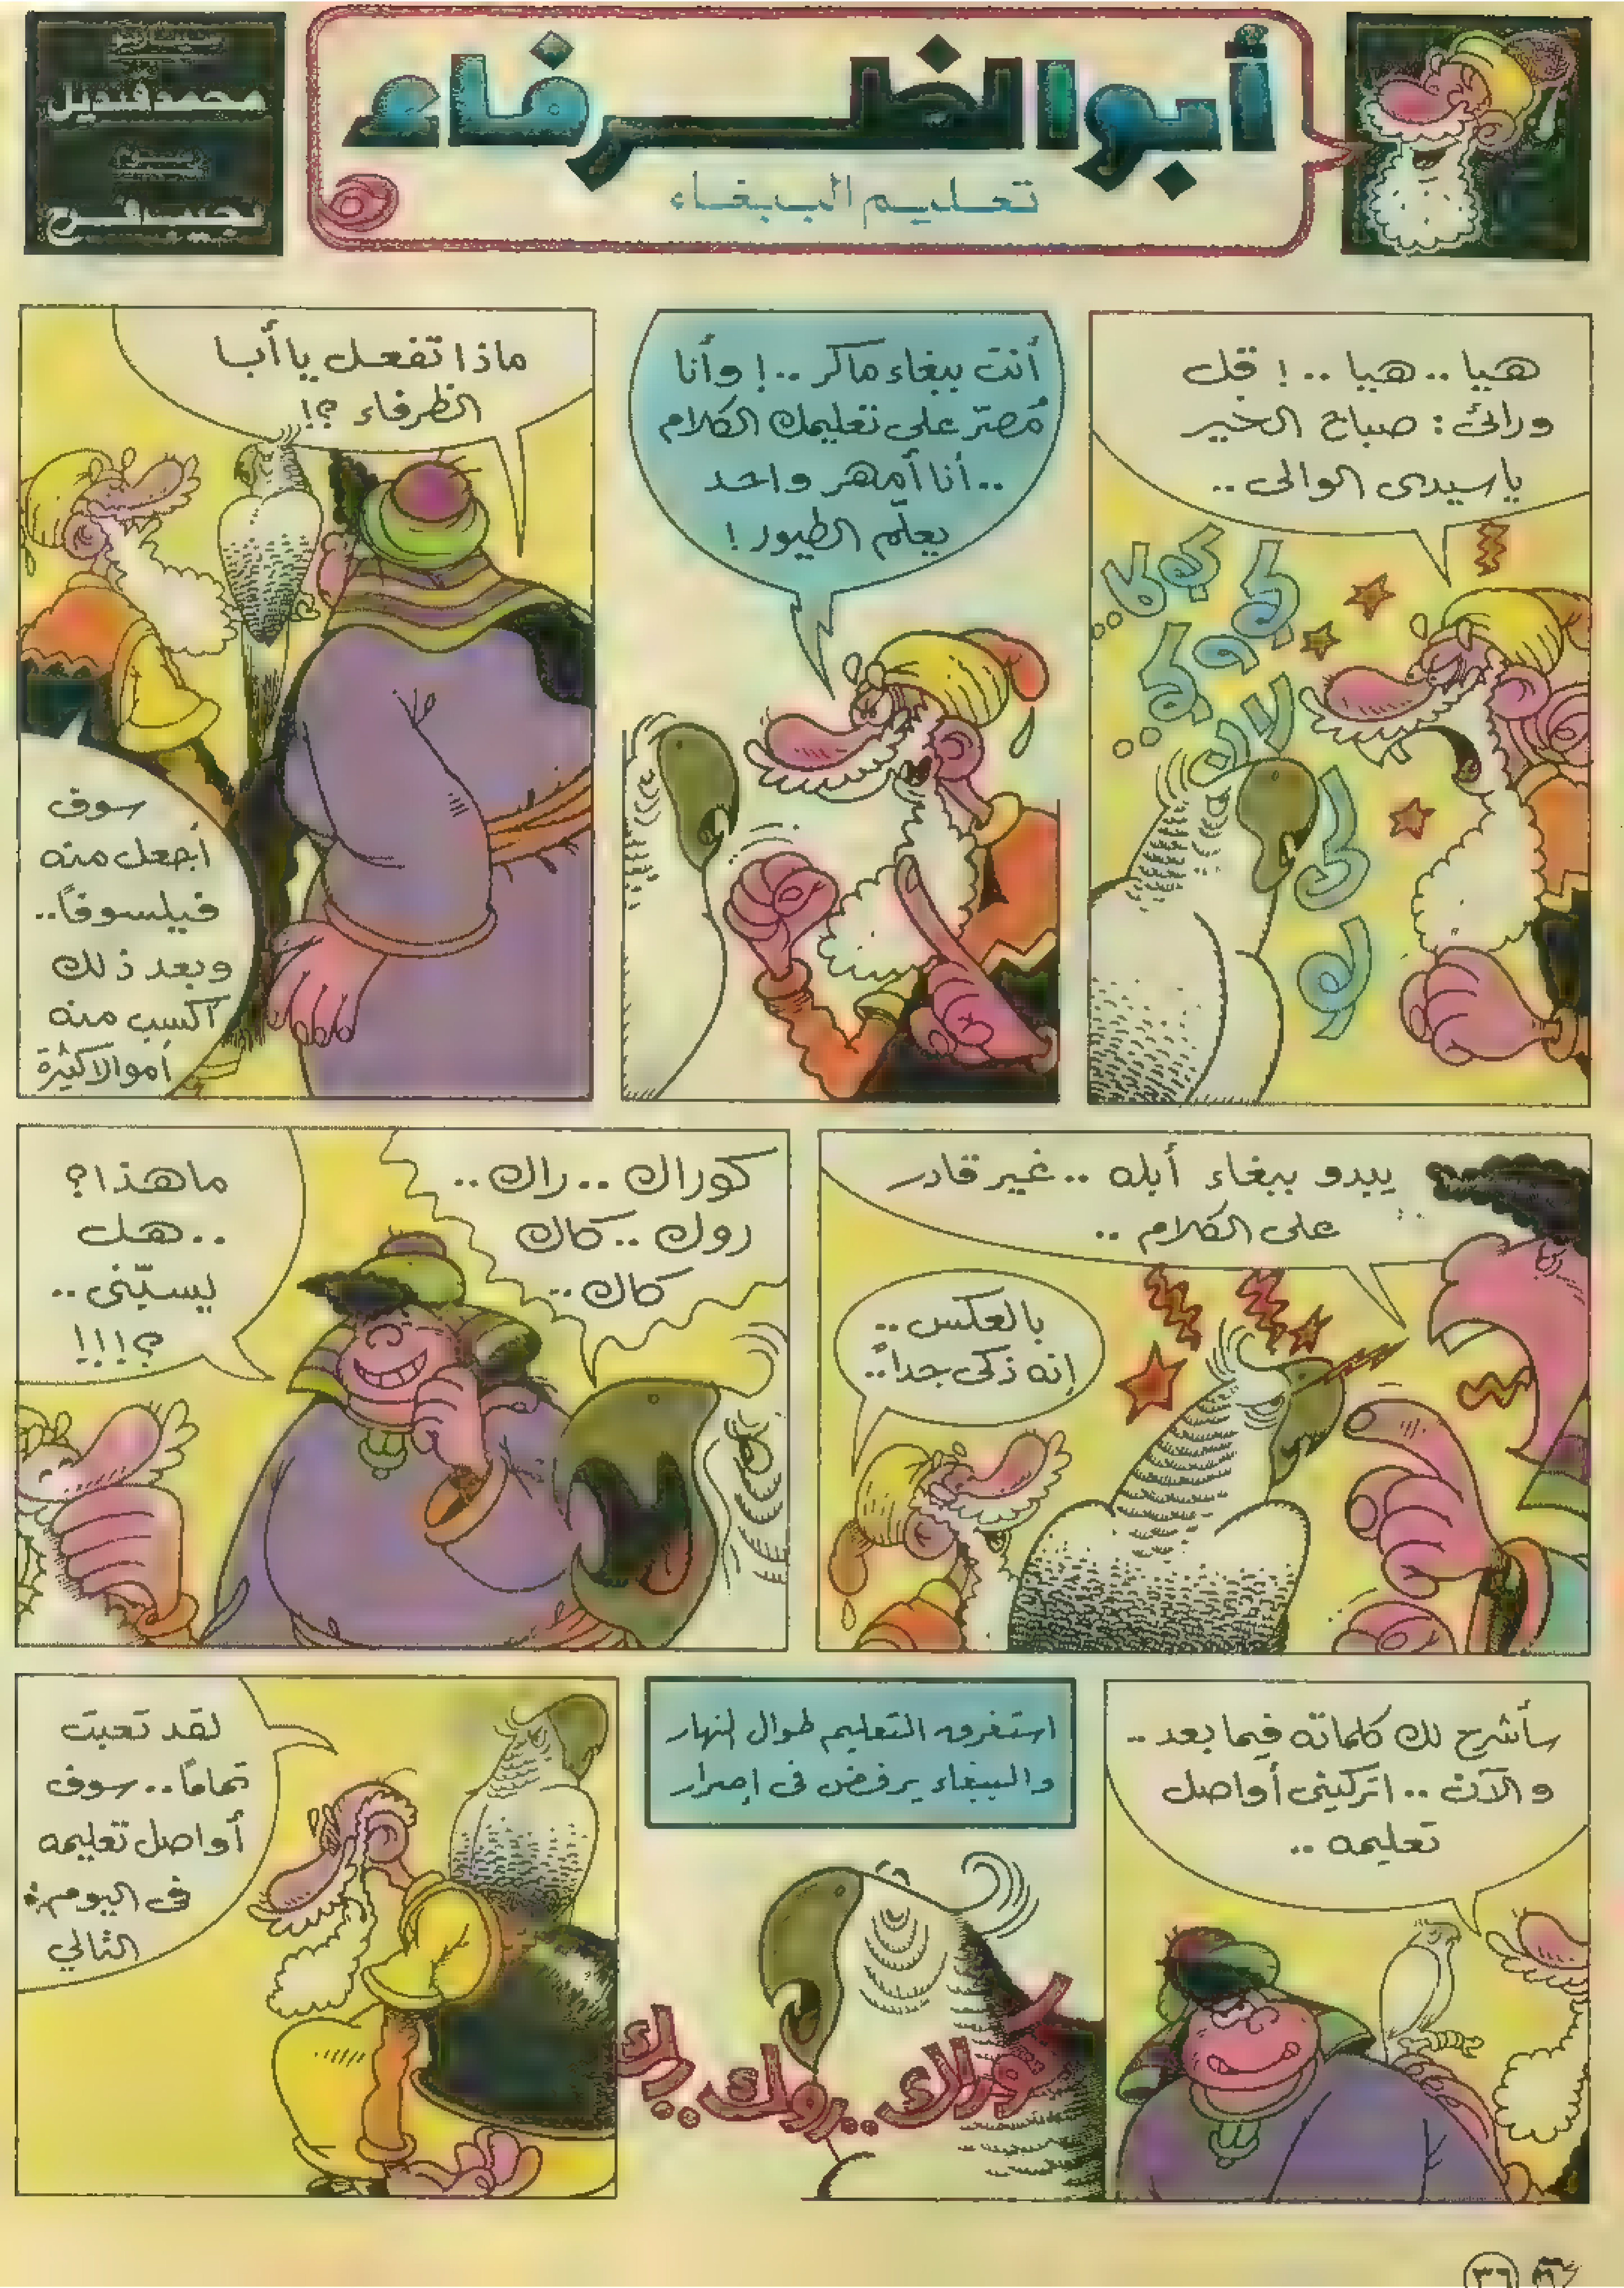 أبو الظرفاء
تعليم الببغاء
سيناريو
محمد قنديل
رسوم
نجيب فرح
هيا .. هيا ..! قل
ورائى : صباح الخير
يا سيدى الوالى ..
أنت ببغاء ماكر ..! وأنا
مُصرّ على تعليمك الكلام
.. أنا أمهر واحد
يعلّم الطيور !
ماذا تفعل يا أبا
الظرفاء ؟!
سوف
أجعل منه
فيلسوفاً ..
وبعد ذلك
أكسب منه
أموالا كثيرة
يبدو ببغاء أبله .. غير قادر
على الكلام ..
بالعكس ..
إنه ذكى جداً ..
كوراك .. راك ..
روك .. كاك
كاك ..
ما هذا ؟
.. هل
يسبّنى ..
؟!!!
سأشرح لك كلماته فيما بعد ..
والآن .. اتركينى أواصل
تعليمه ..
استغرق التعليم طوال النهار
والببغاء يرفض فى إصرار
كوراك .. روك .. رك
لقد تعبت
تماماً .. سوف
أواصل تعليمه
فى اليوم
التالي
٣٦